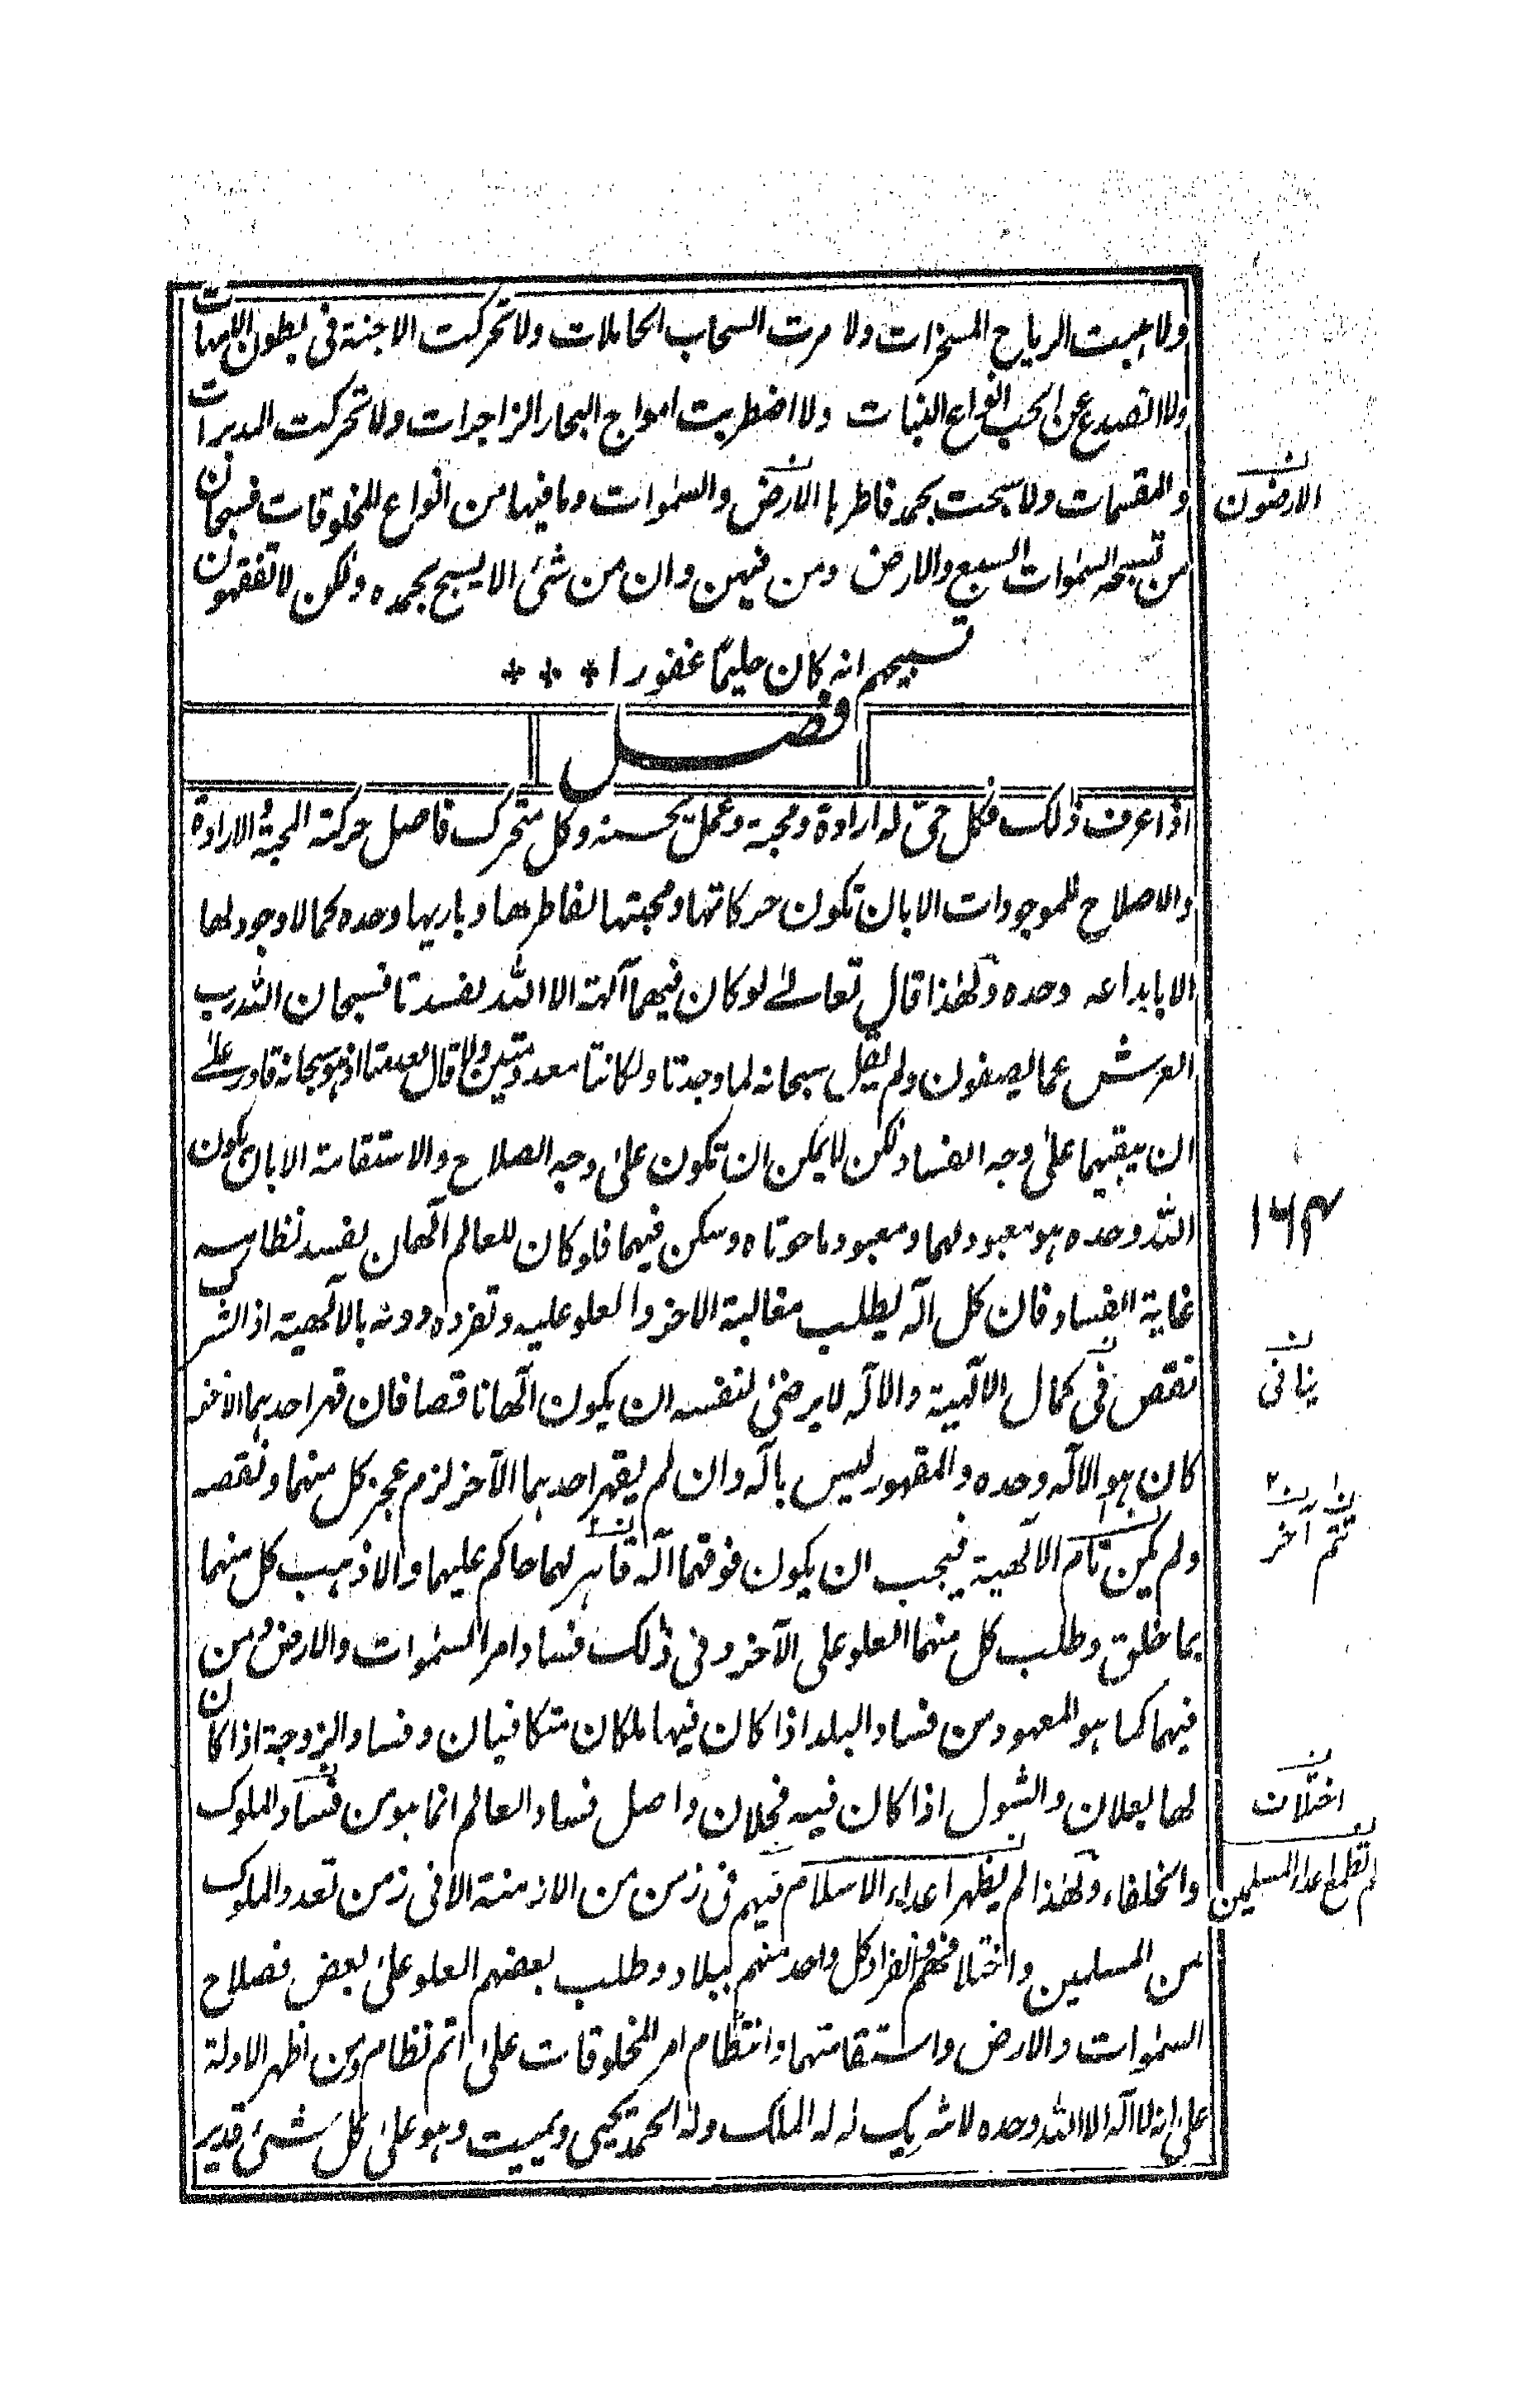 ولا هبت الرياح المسخرات ولا مرت السحاب الحاملات ولا تحركت الاجنة فى بطون الامهات
ولا انصدع عن الحب انواع النبات ولا اضطربت امواج البحار الزاجرات ولا تحركت المدبرات
والمقسمات ولا سبحت بحمد فاطرها الارض والسمٰوات وما فيها من انواع المخلوقات فسبحان
من تسبحه السمٰوات السبع والارض ومن فيهن وان من شئ الا يسبح بحمده ولكن لا تفقهون
تسبيحهم انه كان حليمًا غفورا
فصل
اذا عرف ذلك فكل حىّ له ارادة ومحبة وعمل بحسنه وكل متحرك فاصل حركته المحبة والارادة
والاصلاح للموجودات الا بان تكون حركاتها ومحبتها لفاطرها وباريها وحده كما لا وجود لها
الا بابداعه وحده ولهٰذا قال تعالىٰ لو كان فيهما آلهة الا الله لفسدتا فسبحان الله رب
العرش عما يصفون ولم يقل سبحانه لما وجدتا ولكانتا معدومتين ولا قال لعدمتا اذ هو سبحانه قادر علىٰ
ان يبقيهما علىٰ وجه الفساد ولكن لا يمكن ان تكون علىٰ وجه الصلاح والاستقامة الا بان يكون
الله وحده هو معبود لهما ومعبود ما حوتاه وسكن فيهما فلو كان للعالم الٰهان لفسد نظامه
غاية الفساد فان كل اله يطلب مغالبة الاخر والعلو عليه وتفرده دونه بالالٰهية اذ الشرك
نقص فى كمال الالٰهية والاله لا يرضىٰ لنفسه ان يكون الٰها ناقصا فان قهر احدهما الاخر
كان هو الاله وحده والمقهور ليس باله وان لم يقهر احدهما الآخر لزم عجز كل منهما ونقصه
ولم يكن تام الالٰهية فيجب ان يكون فوقهما اله قاهر لهما حاكم عليهما والا ذهب كل منهما
بما خلق وطلب كل منهما العلو على الآخر وفى ذٰلك فساد امر السمٰوات والارض ومن
فيهما كما هو المعهود من فساد البلد اذا كان فيها ملكان متكافيان وفساد الزوجة اذا كان
لها بعلان والشول اذا كان فيه فحلان واصل فساد العالم انما هو من فساد الملوك
والخلفاء ولهٰذا لم يظهر اعداء الاسلام فيهم فى زمن من الازمنة الا فى زمن تعدد الملوك
من المسلمين واختلافهم وانفراد كل واحد منهم ببلاد وطلب بعضهم العلو علىٰ بعض فصلاح
السمٰوات والارض واستقامتهما وانتظام امر المخلوقات علىٰ اتم نظام ومن اظهر الادلة
علىٰ انه لا اله الا الله وحده لا شريك له له الملك وله الحمد يحيى ويميت وهو علىٰ كل شئ قدير
ن
الارضون
١٦٣
ن
ينافى
ن ن ٢
تتم اخر
ن
اختلات
ن
لم تطمع اعداء المسلمين